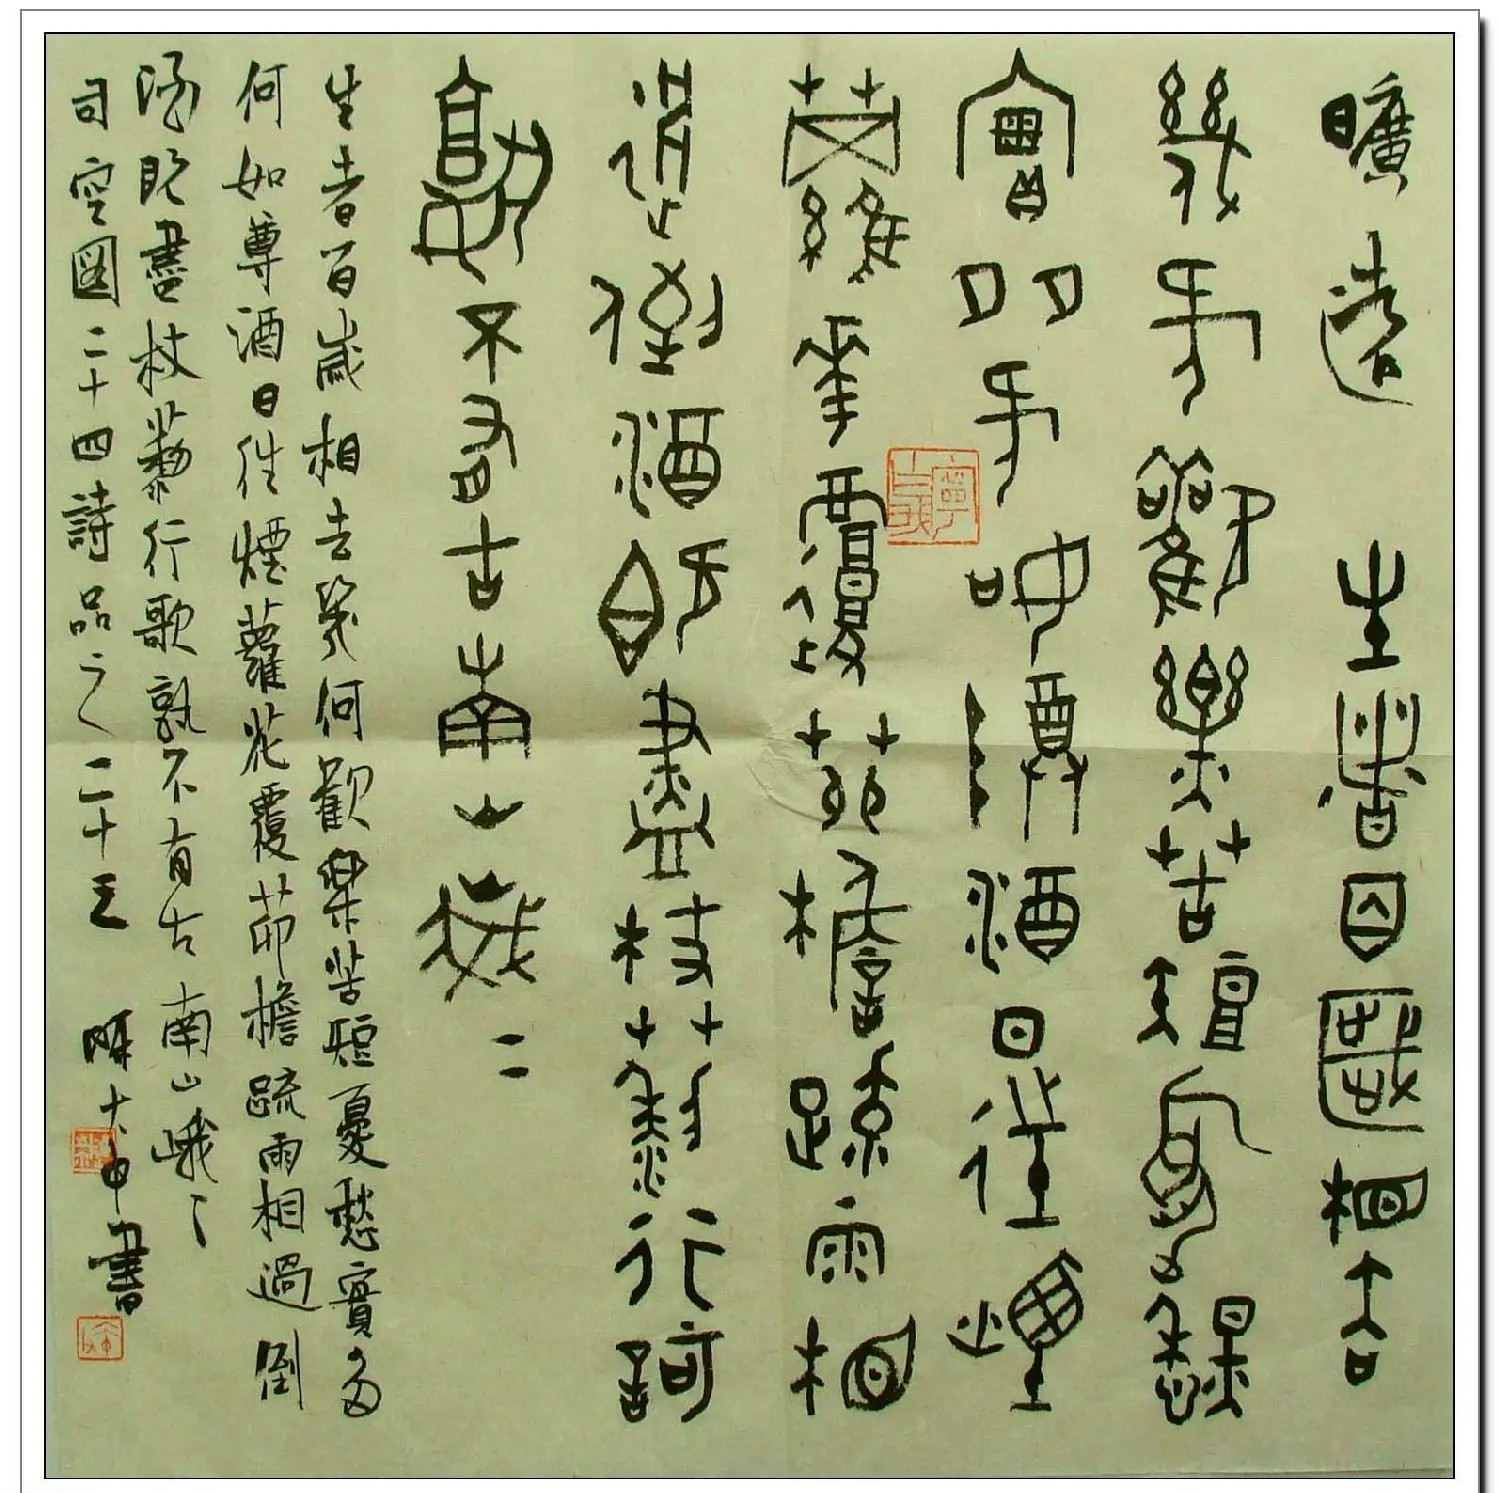 曠達 生者百歲相去
幾何歡樂苦短憂愁
實多何如尊酒日往煙
蘿花覆茆檐疏雨相
過倒酒既盡杖藜行歌
孰不有古南山峨二
生者百歲相去幾何歡樂苦短憂愁實多
何如尊酒日往煙蘿花覆茆檐疏雨相過倒
酒既盡杖藜行歌孰不有古南山峨〻
司空圖二十四詩品之二十三 陳大中書